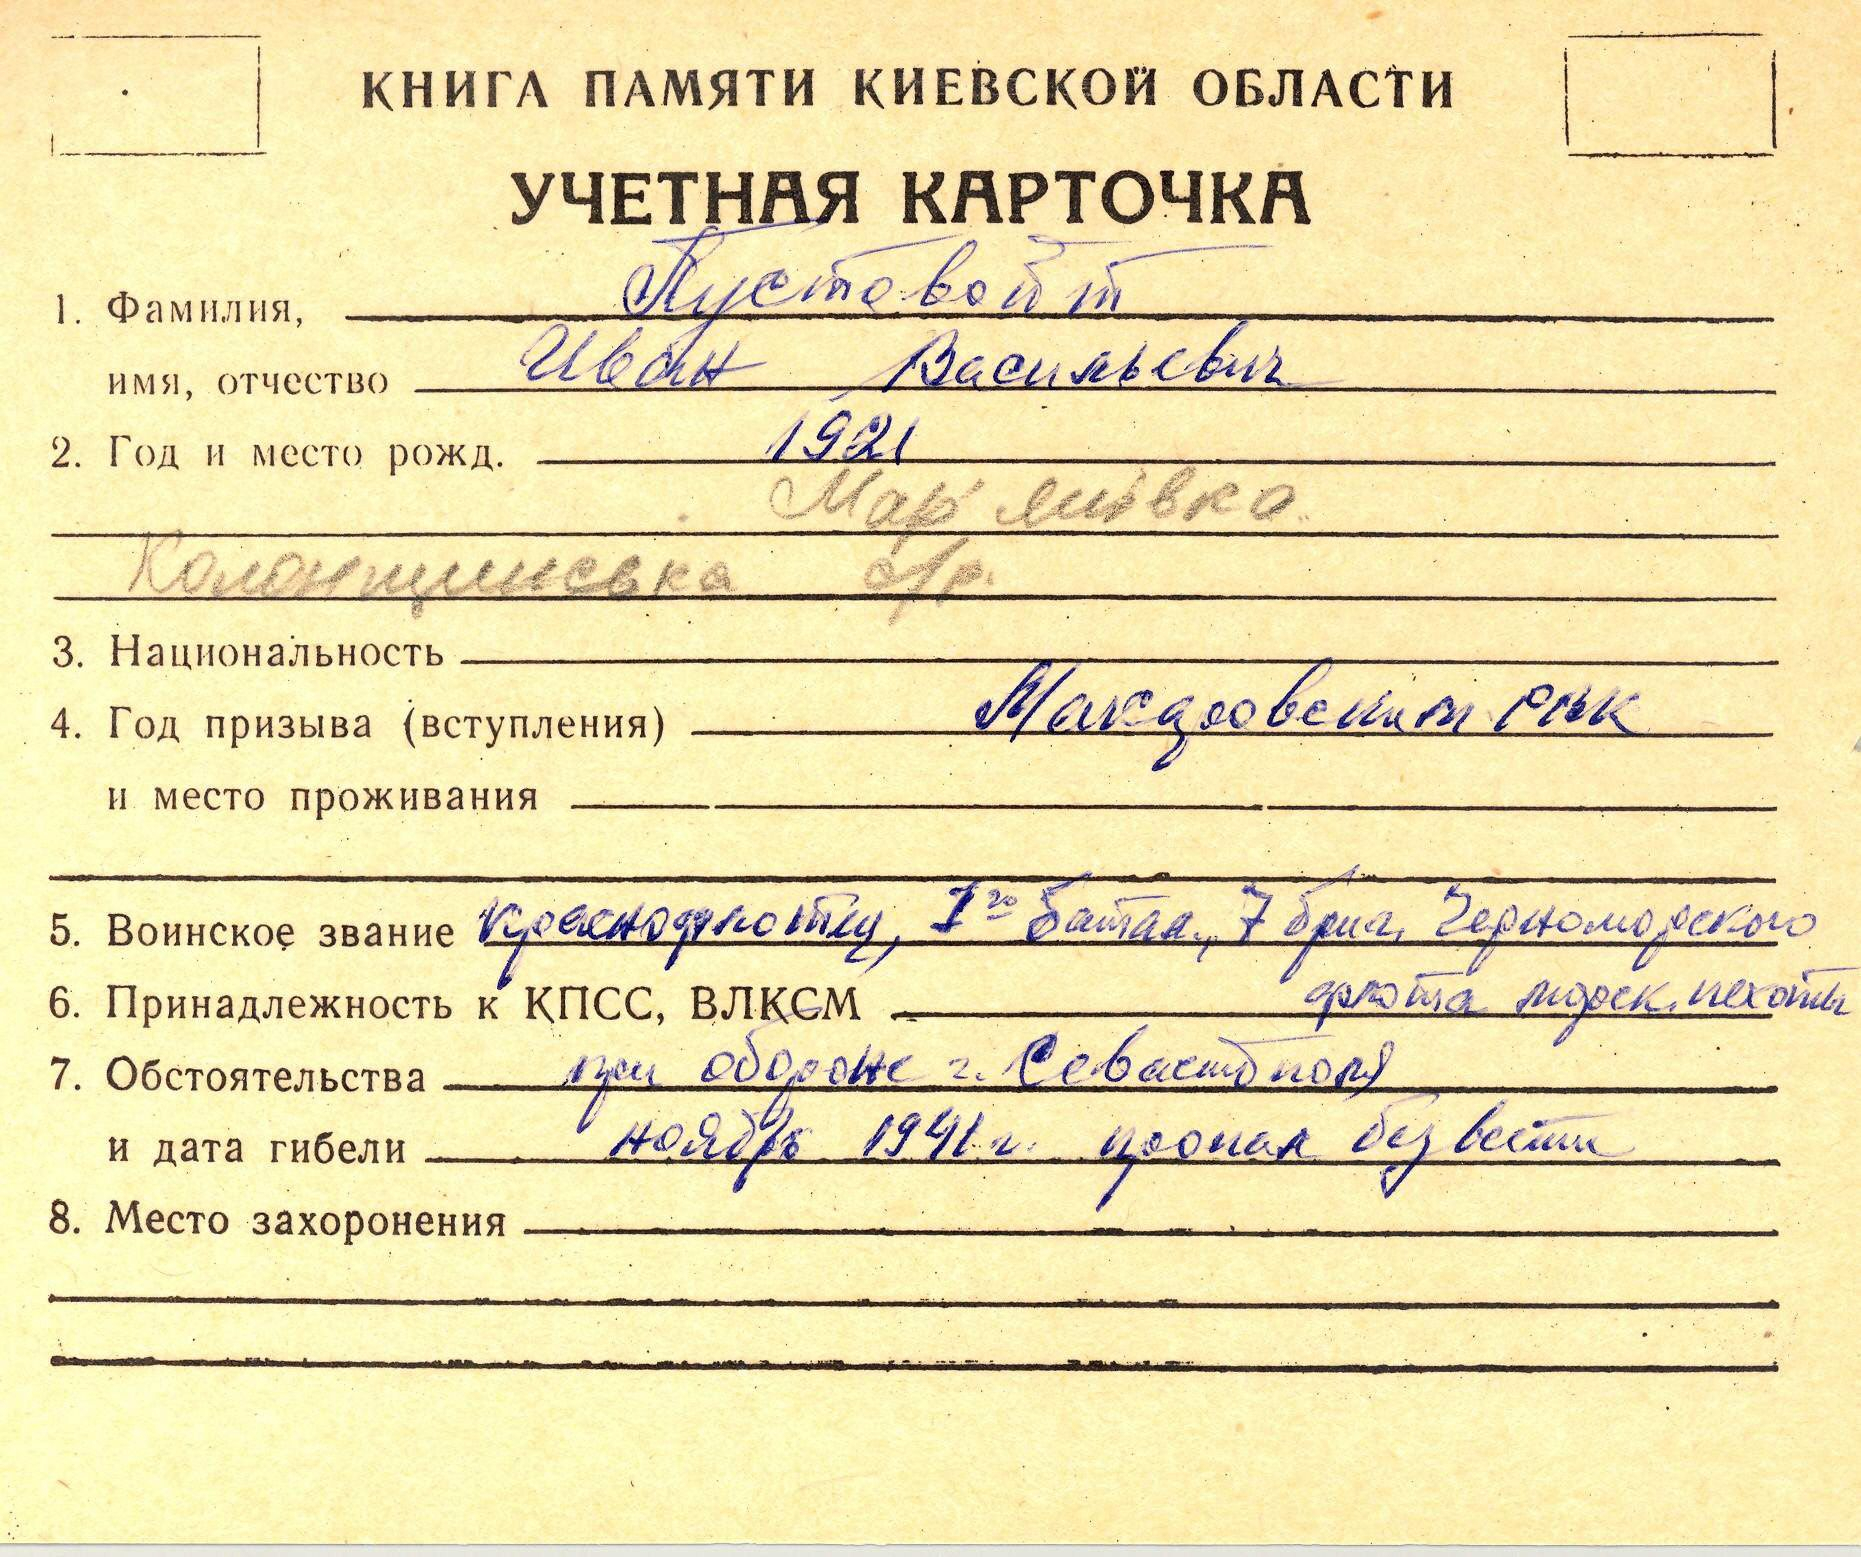 КНИГА ПАМЯТИ КИЕВСКОЙ ОБЛАСТИ
УЧЕТНАЯ КАРТОЧКА
1. Фамилия, Пустовойт
имя, отчество Иван Васильевич
2. Год и место рожд. 1921
Мар'янівка
Колонщинська с/р.
3. Национальность
4. Год призыва (вступления) Макаровским РВК
и место проживания
5. Воинское звание краснофлотец, 1го батал., 7 бриг. Черноморского
6. Принадлежность к КПСС, ВЛКСМ флота морск. пехоты
7. Обстоятельства при обороне г. Севастополя
и дата гибели ноябрь 1941 г. пропал без вести
8. Место захоронения